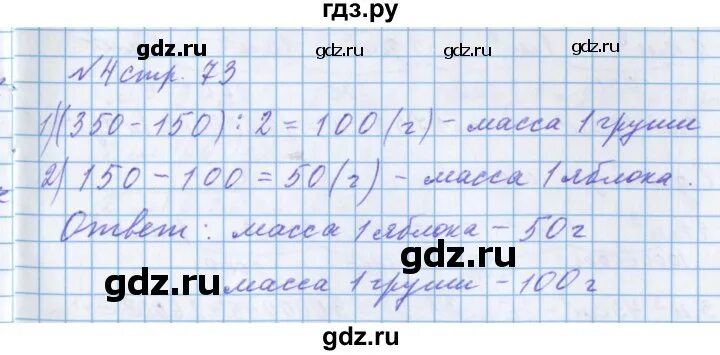 гдз.ру
gdz.ru gdz.ru gdz.ru
№4 стр. 73
1) (350-150) : 2 = 100 (г) - масса 1 груши
2) 150 - 100 = 50 (г) - масса 1 яблока.
gdz.ru gdz.ru
Ответ: масса 1 яблока - 50 г
масса 1 груши - 100 г
gdz.ru gdz.ru
gdz.ru